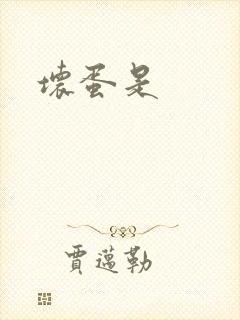 壞蛋是
賈邁勒